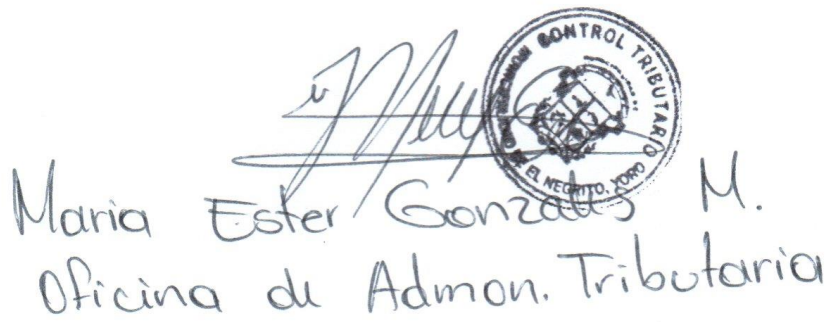 CONTROL TRIBUTARIO
EL NEGRITO, YORO
Maria Ester Gonzales M.
Oficina de Admon. Tributaria